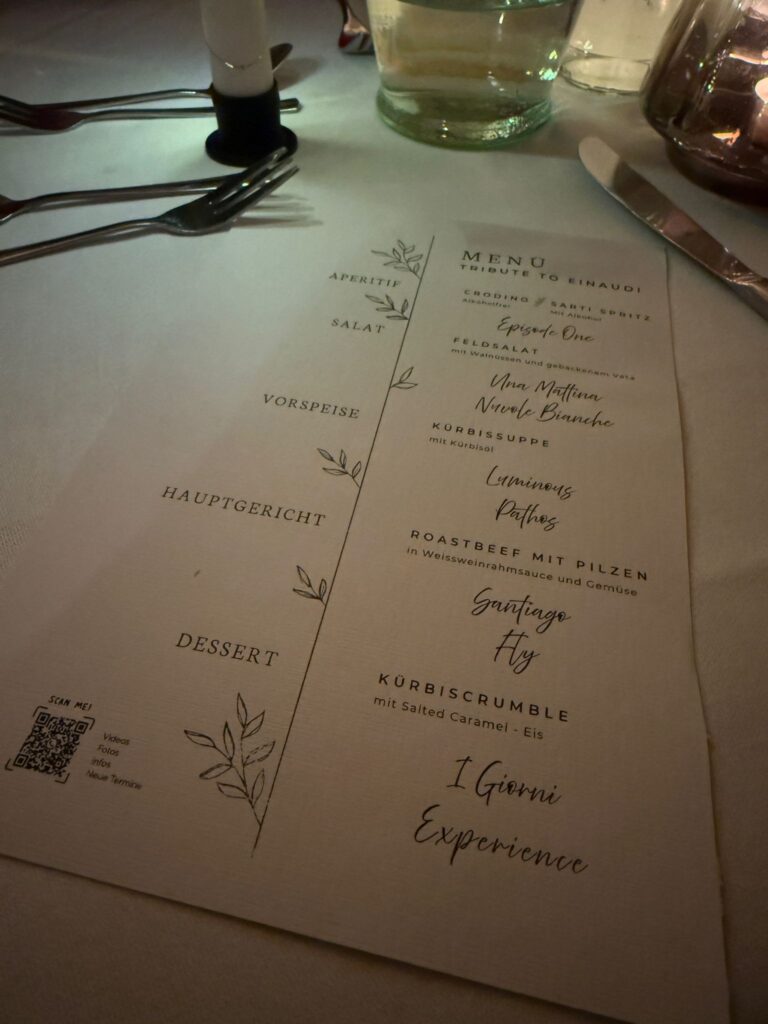 MENÜ
TRIBUTE TO EINAUDI
APERITIF
CRODINO // SARTI SPRITZ
Alkoholfrei
Mit Alkohol
Episode One
SALAT
FELDSALAT
mit Walnüssen und gebackenem Feta
Una Mattina
Nuvole Bianche
VORSPEISE
KÜRBISSUPPE
mit Kürbisöl
Luminous
Pathos
HAUPTGERICHT
ROASTBEEF MIT PILZEN
in Weissweinrahmsauce und Gemüse
Santiago
Fly
DESSERT
KÜRBISCRUMBLE
mit Salted Caramel - Eis
I Giorni
Experience
SCAN ME!
Videos
Fotos
Infos
Neue Termine